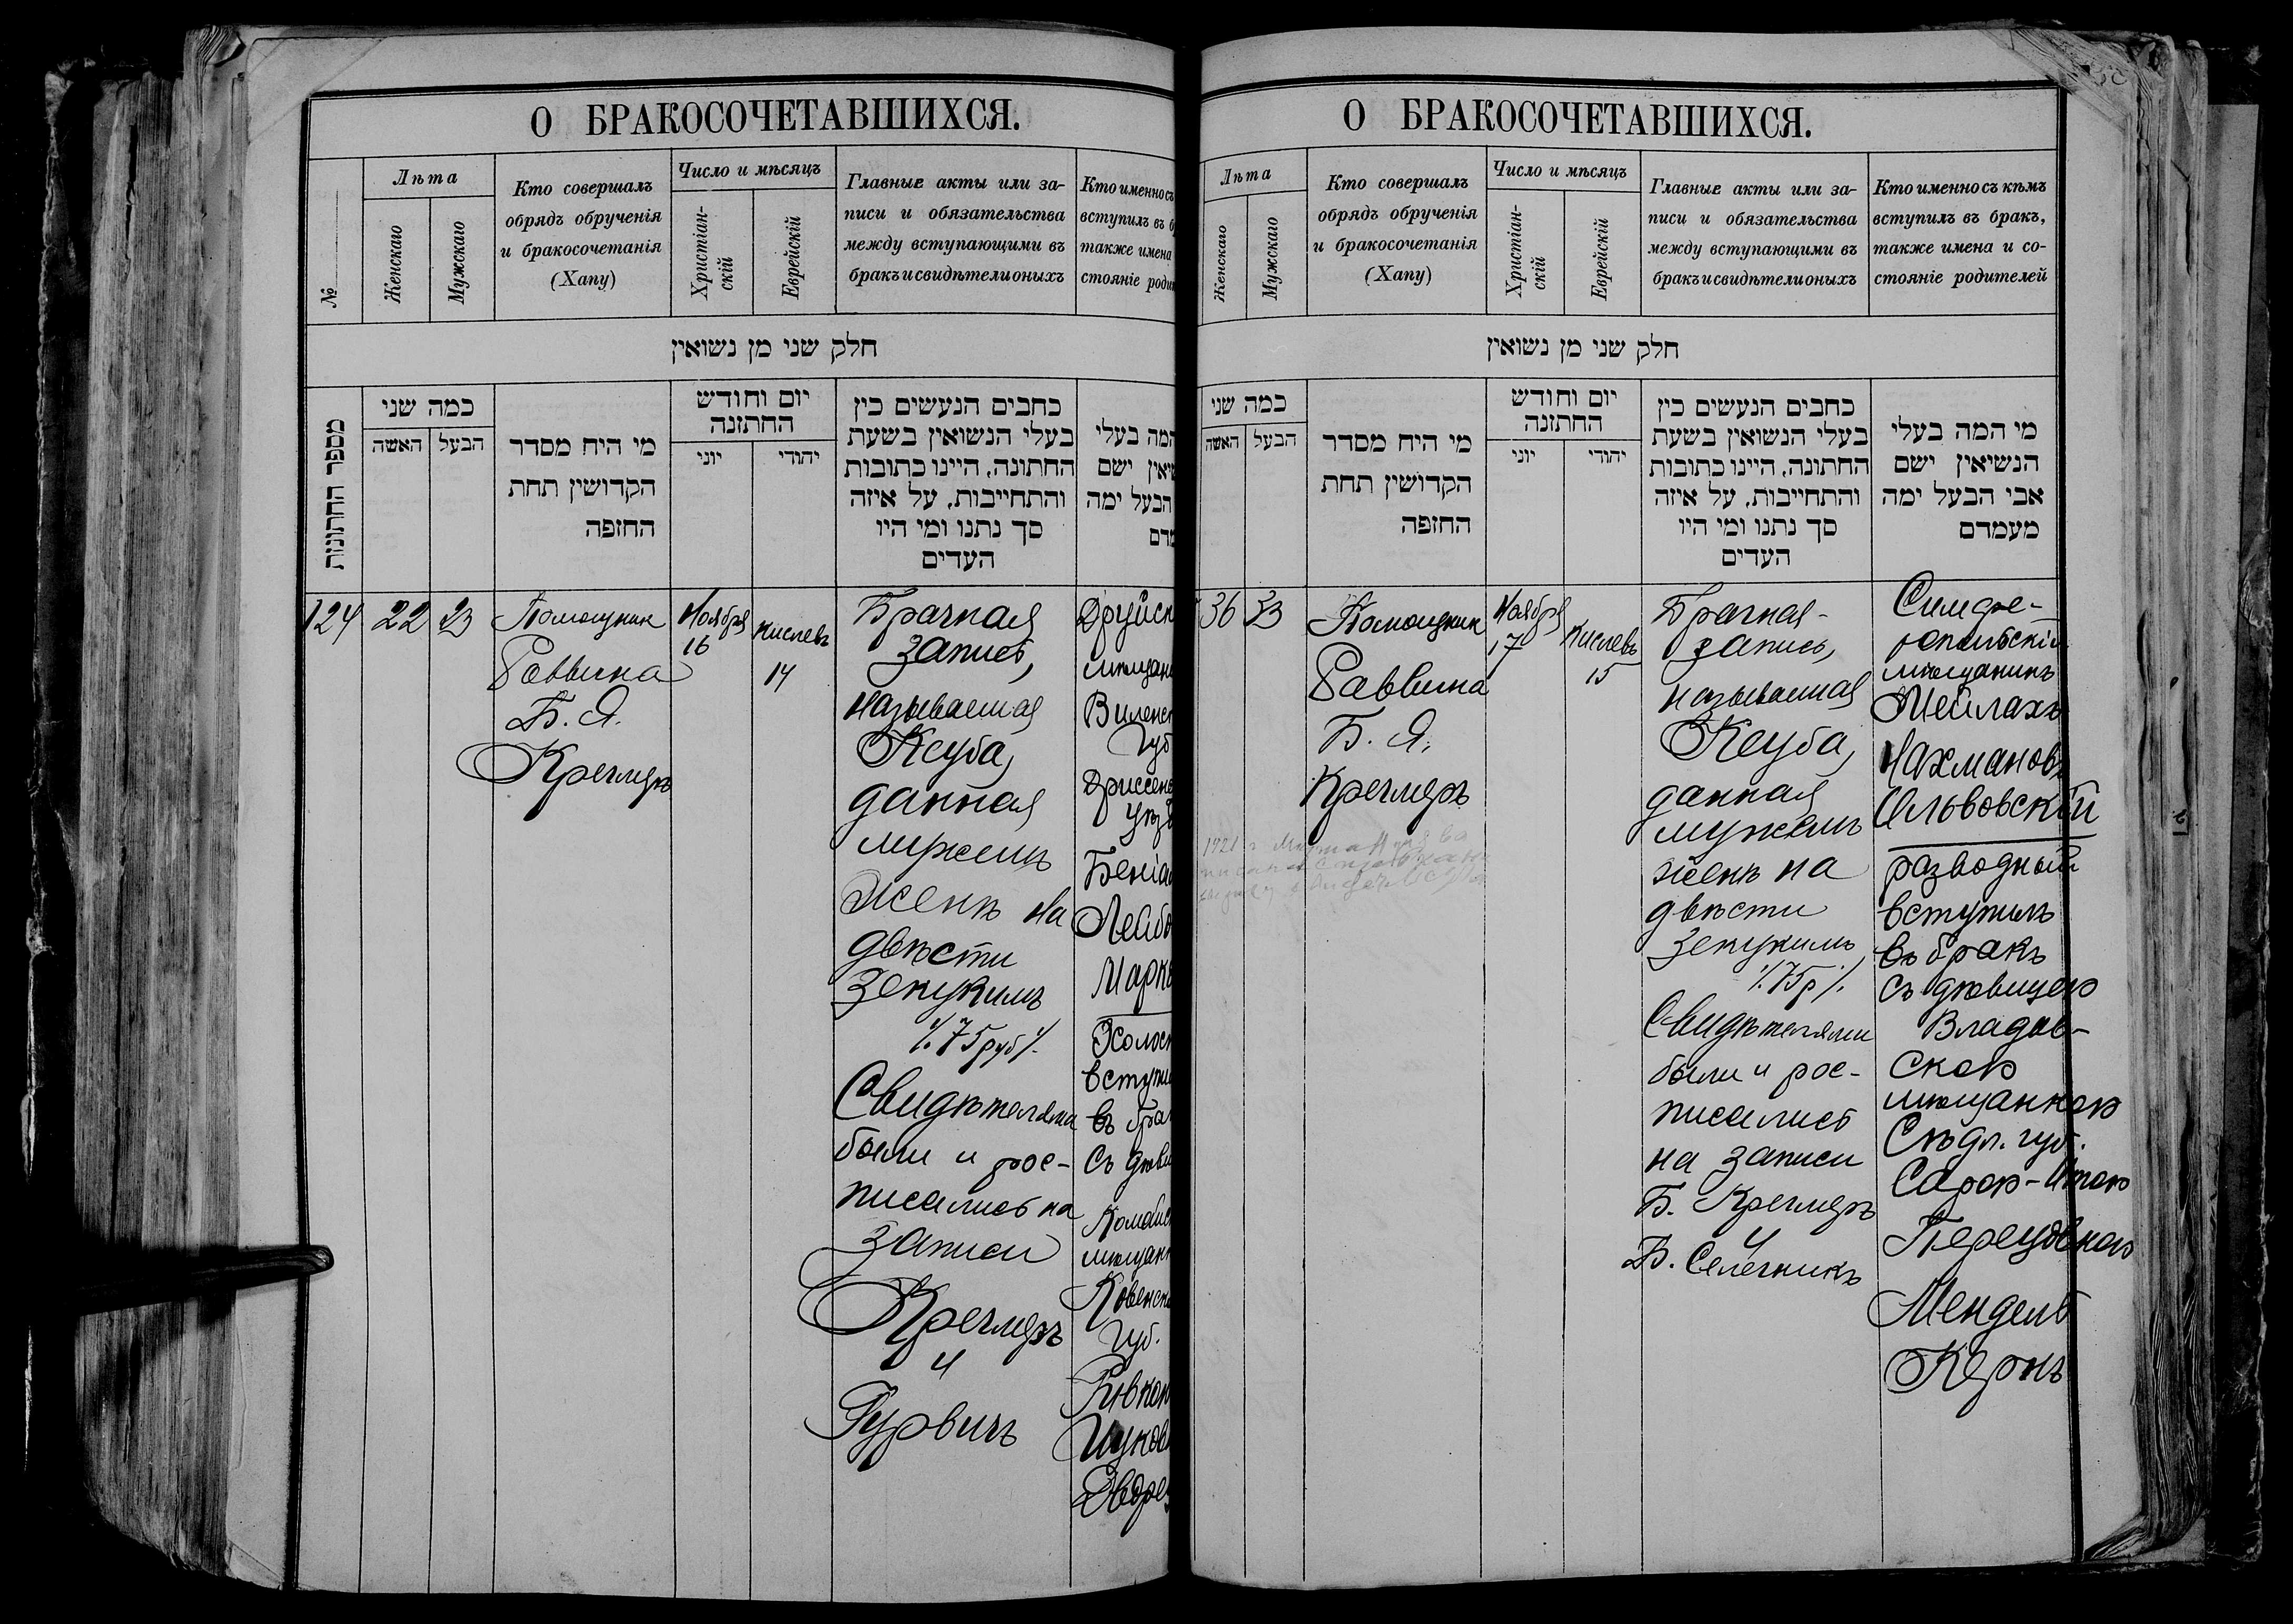 О БРАКОСОЧЕТАВШИХСЯ.
№
Лѣта
Женскаго
Мужскаго
Кто совершалъ
обрядъ обрученія
и бракосочетанія
(Хапу)
Число и мѣсяцъ
Христіан-
скій
Еврейскій
Главные акты или за-
писи и обязательства
между вступающими въ
бракъ и свидѣтели оныхъ
Кто именно съ
вступилъ въ б
также имена
стояніе роди
חלק שני מן נשואין
מספר החתונות
כמה שני
האשה
הבעל
מי היח מסדר
הקדושין תחת
החזפה
יום וחודש
החתזנה
יוני
יהודי
כחבים הנעשים כין
בעלי הנשואין בשעת
החתונה, היינו כתובות
והתחייבות, על איזה
סך נתנו ומי היו
העדים
המה בעלי
שיאין ישם
הבעל ימה
124
22
23
Помощникъ
Раввина
Б. Я.
Кречмеръ
Ноября
16
Кислевъ
14
Брачная
запись,
называемая
Ксуба,
данная
мужемъ
женѣ на
двѣсти
зекукимъ
./.75 руб./.
Свидѣтелями
были и рос-
писались на
записи
Кречмеръ
и
Гурвичъ
Друйск
мѣщан
Виленск
губ
Дриссенс
уѣзд
Беніа
Лейбо
Марк
Холос
вступи
въ бра
съ дѣви
мѣщан
Ковенск
губ.
О БРАКОСОЧЕТАВШИХСЯ.
Лѣта
Женскаго
Мужскаго
Кто совершалъ
обрядъ обрученія
и бракосочетанія
(Хапу)
Число и мѣсяцъ
Христіан-
скій
Еврейскій
Главные акты или за-
писи и обязательства
между вступающими въ
бракъ и свидѣтели оныхъ
Кто именно съ кѣмъ
вступилъ въ бракъ,
также имена и со-
стояніе родителей
חלק שני מן נשואין
כמה שני
האשה
הבעל
מי היח מסדר
הקדושין תחת
החזפה
יום וחודש
החתזנה
יוני
יהודי
כחבים הנעשים כין
בעלי הנשואין בשעת
החתונה, היינו כתובות
והתחייבות, על איזה
סך נתנו ומי היו
העדים
מי המה בעלי
הנשיאין ישם
אבי הבעל ימה
מעמדם
36
33
Помощникъ
Раввина
Б. Я.
Кречмеръ
Ноября
17
Кислевъ
15
Брачная
запись,
называемая
Ксуба,
данная
мужемъ
женѣ на
двѣсти
зекукимъ
./.75р./.
Свидѣтелями
были и рос-
писались
на записи
Б. Кречмеръ
и
Б. Селечникъ
Симфе-
ропольскій
мѣщанинъ
Мейлахъ
Нахмановъ
Ильвовскій
разводный
вступилъ
въ бракъ
съ дѣвицею
Владов-
скою
мѣщанкою
Сѣдл. губ.
Сарою-Итою
Перецовною
Мендель
Кернъ